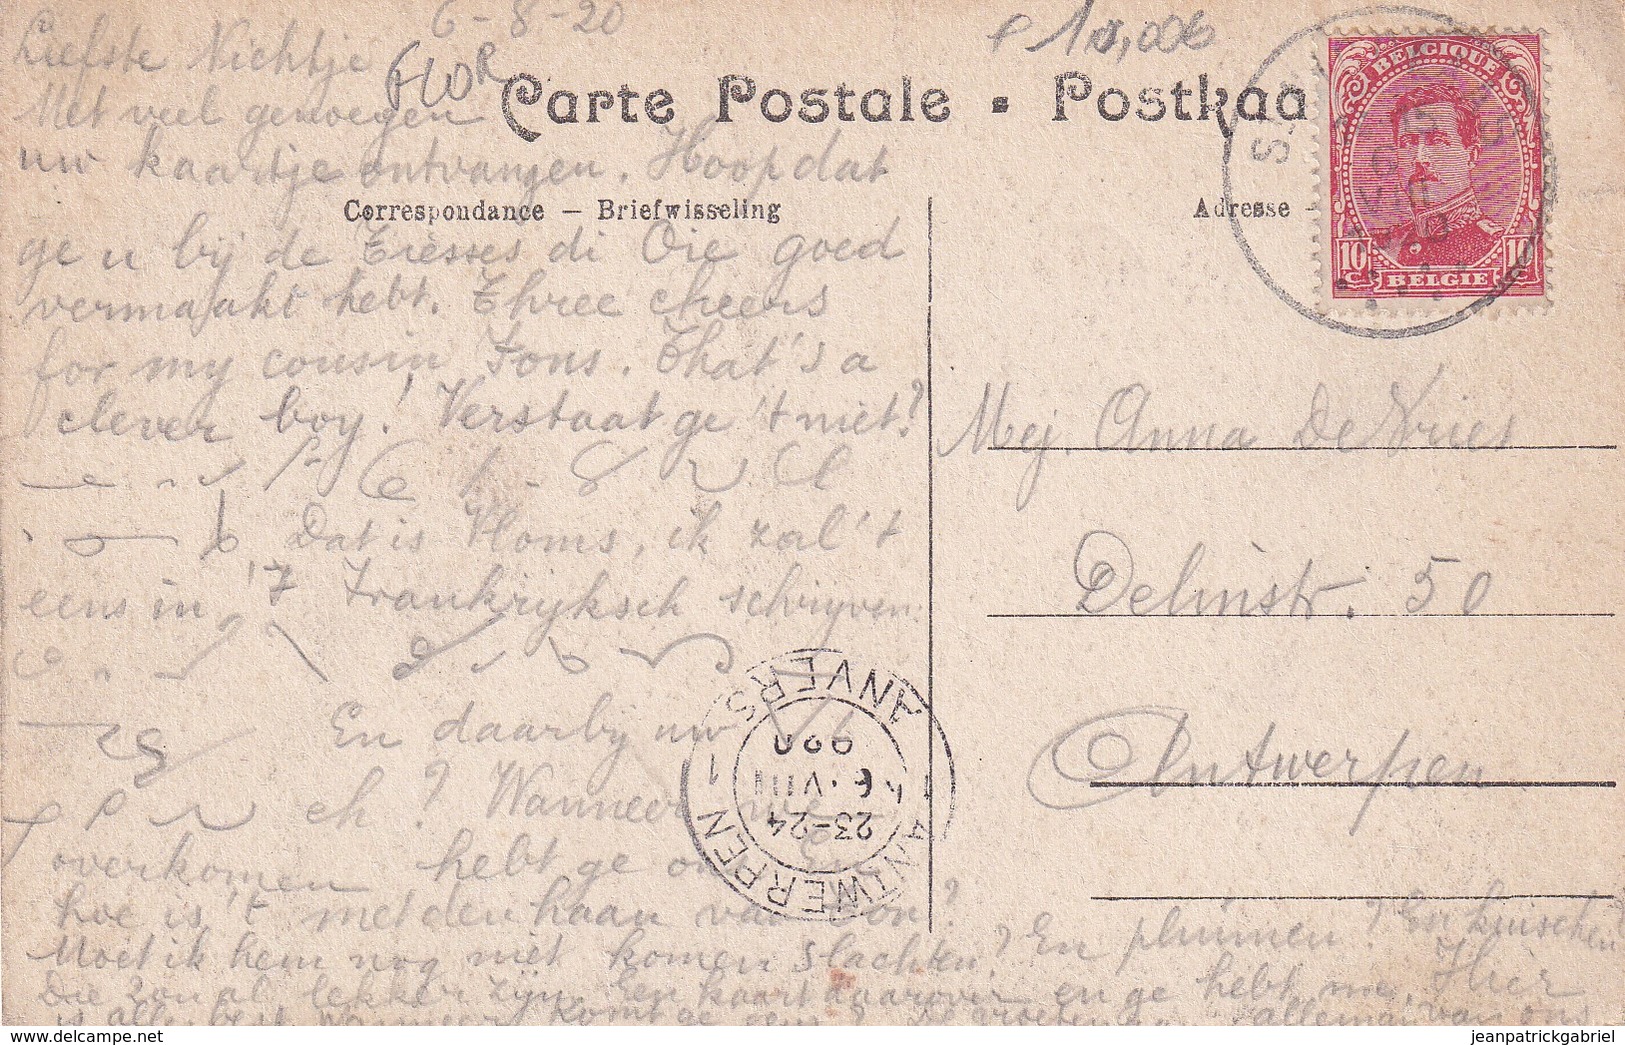 6-8-20
Liefste Nichtje
FLOR
Met veel genoegen
uw kaartje ontvangen. Hoop dat
ge u bij de Tresses di Oie goed
vermaakt hebt. Three cheers
for my cousin Fons. That's a
clever boy! Verstaat ge 't niet?
Dat is Vloms, ik zal 't
eens in 't Frankrijksch schrijven:
En daarbij uw
eh? Wanneer we
overkomen hebt ge on
hoe is 't met den haan van
Moet ik hem nog niet komen slachten? En pluimen? En kuischen?
Die zou al lekker zijn. Een kaart daarover en ge hebt me. Hier
is alle best. Wanneer komt ge van ons
Carte Postale - Postkaa
Correspondance — Briefwisseling
Adresse
BELGIQUE
10 C 10 C
BELGIE
Mej. Anna De Vries
Delinstr. 50
Antwerpen
ANTWERPEN 1
ANVERS 1
23-24
6 VIII
jeanpatrickgabriel